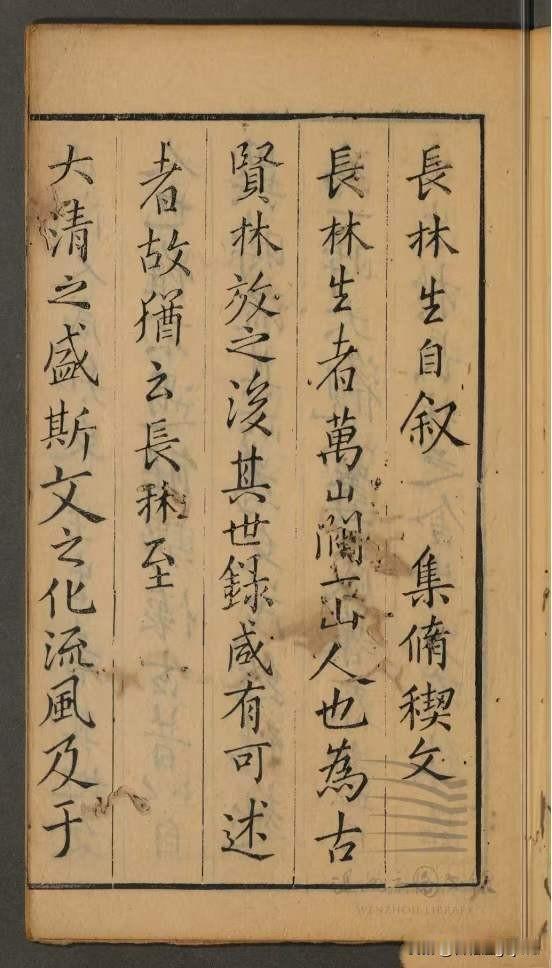 長林生自叙 集脩稧文
長林生者萬山山人也為古
賢林放之後其世録咸有可述
者故猶云長林至
大清之盛斯文之化流風及于
WENZHOU LIBRARY